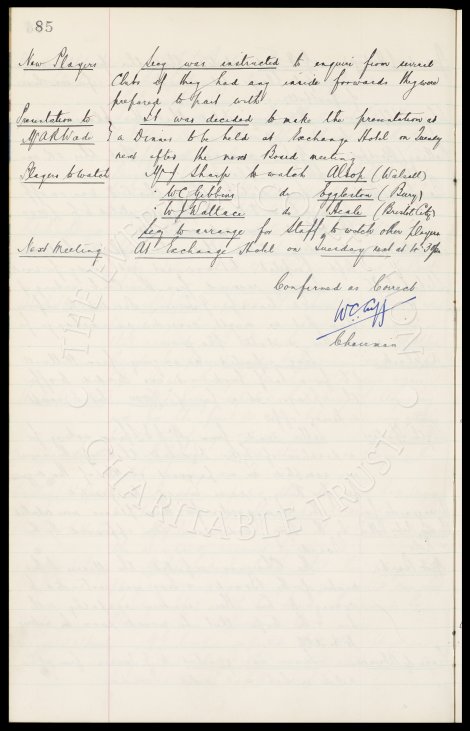 85
New Players Secy was instructed to enquire from several
Clubs if they had any inside forwards they were
prepared to part with
Presentation to It was decided to make the presentation at
Mr A R Wade } a Dinner to be held at Exchange Hotel on Tuesday
next after the next Board meeting
Players to watch Mr J Sharp to watch Alsop (Walsall)
" W C Gibbins do Eggleston (Bury)
" W J Wallace do Heale (Bristol City)
Secy to arrange for Staff to watch other players
Next Meeting At Exchange Hotel on Tuesday next at 4.30pm
Confirmed as Correct
W.C. Cuff
Chairman
THE EVERTON COLLECTION
CHARITABLE TRUST